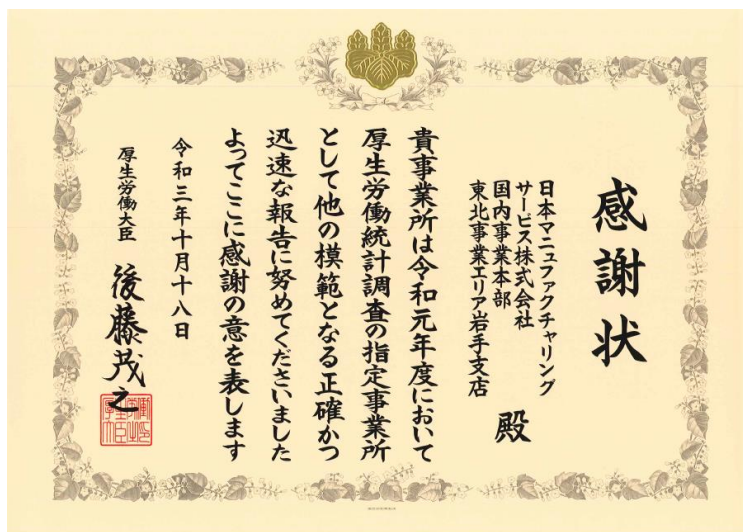 感謝状
日本マニュファクチャリング
サービス株式会社
国内事業本部
東北事業エリア岩手支店
殿
貴事業所は令和元年度において
厚生労働統計調査の指定事業所
として他の模範となる正確かつ
迅速な報告に努めてくださいました
よってここに感謝の意を表します
令和三年十月十八日
厚生労働大臣 後藤茂之